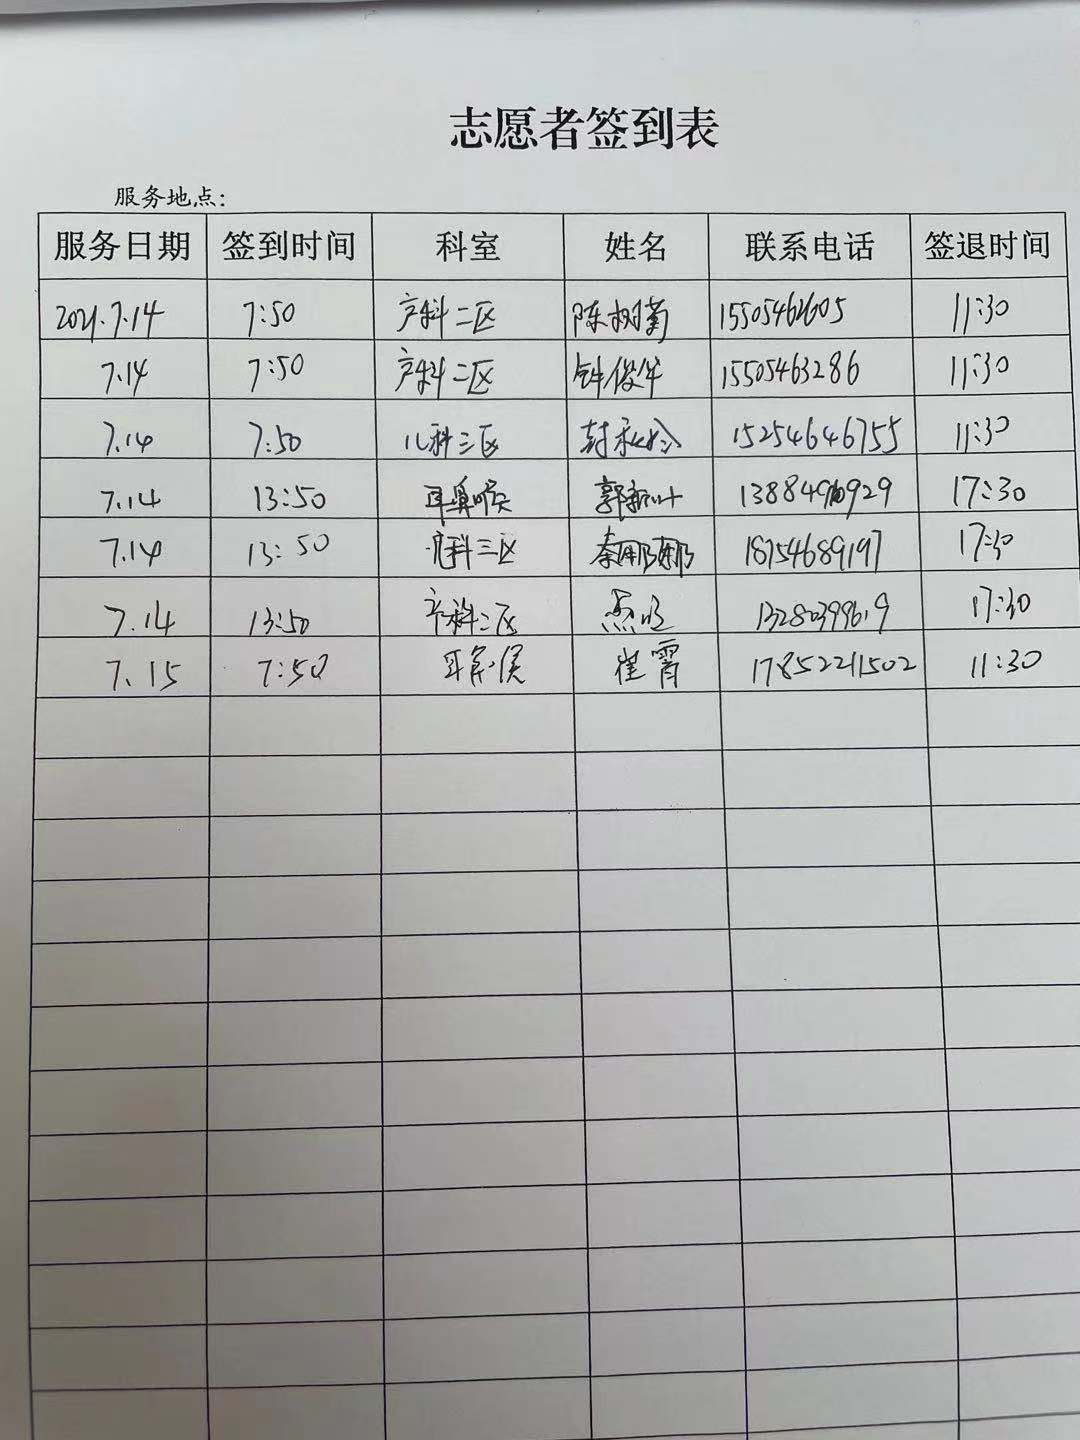 志愿者签到表
服务地点：
服务日期 签到时间 科室 姓名 联系电话 签退时间
2021.7.14 7:50 产科二区 陈树菊 15505462605 11:30
7.14 7:50 产科二区 15505463286 11:30
7.14 7:50 儿科三区 15254646755 11:30
7.14 13:50 耳鼻喉 郭新叶 17:30
7.14 13:50 科三区 秦娜娜 18754689197 17:30
7.14 13:50 产科二区 17:30
7.15 7:50 耳鼻喉 崔霄 17852211502 11:30